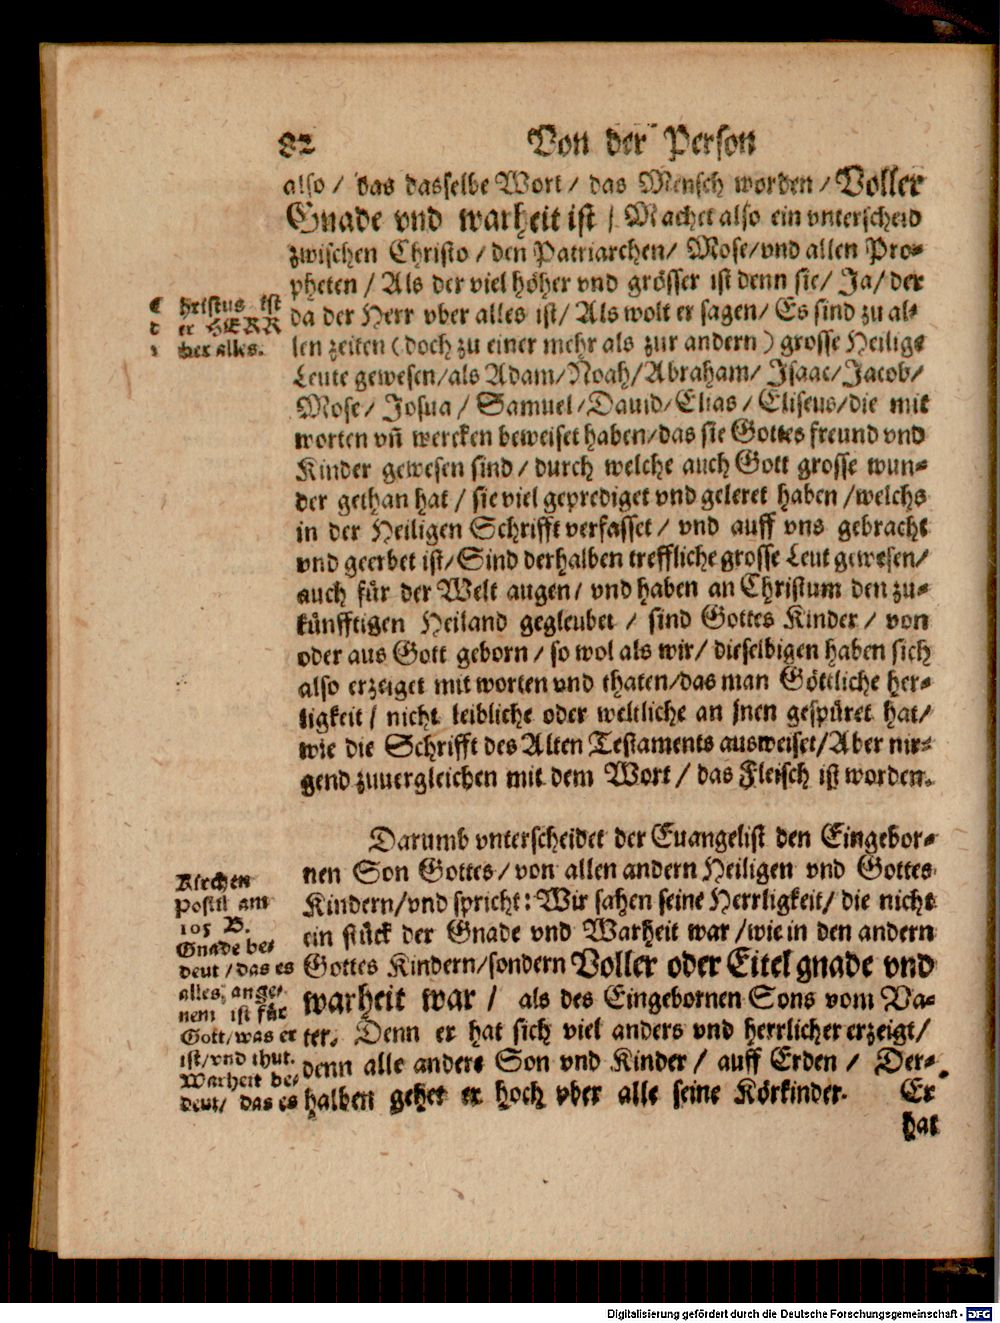 82 Von der Person
also / das dasselbe Wort / das Mensch worden / Voller
Gnade vnd warheit ist / Machet also ein vnterscheid
zwischen Christo / den Patriarchen / Mose / vnd allen Pro-
pheten / Als der viel höher vnd grösser ist denn sie / Ja / der
da der Herr vber alles ist / Als wolt er sagen / Es sind zu al-
len zeiten (doch zu einer mehr als zur andern) grosse Heilige
Leute gewesen / als Adam / Noah / Abraham / Isaac / Jacob /
Mose / Josua / Samuel / Dauid / Elias / Eliseus / die mit
worten vñ wercken beweiset haben / das sie Gottes freund vnd
Kinder gewesen sind / durch welche auch Gott grosse wun-
der gethan hat / sie viel geprediget vnd geleret haben / welchs
in der Heiligen Schrifft verfasset / vnd auff vns gebracht
vnd geerbet ist / Sind derhalben treffliche grosse Leut gewesen /
auch für der Welt augen / vnd haben an Christum den zu-
künfftigen Heiland gegleubet / sind Gottes Kinder / von
oder aus Gott geborn / so wol als wir / dieselbigen haben sich
also erzeiget mit worten vnd thaten / das man Göttliche her-
ligkeit / nicht leibliche oder weltliche an jnen gespüret hat /
wie die Schrifft des Alten Testaments ausweiset / Aber nir-
gend zuuergleichen mit dem Wort / das Fleisch ist worden.
hristus ist
er HERR
ber alles.
Darumb vnterscheidet der Euangelist den Eingebor-
nen Son Gottes / von allen andern Heiligen vnd Gottes
Kindern / vnd spricht: Wir sahen seine Herrligkeit / die nicht
ein stück der Gnade vnd Warheit war / wie in den andern
Gottes Kindern / sondern Voller oder Eitel gnade vnd
warheit war / als des Eingebornen Sons vom Va-
ter. Denn er hat sich viel anders vnd herrlicher erzeigt /
denn alle andere Son vnd Kinder / auff Erden / Der-
halben gehet er hoch vber alle seine Körkinder. Er
hat
Kirchen
Postil am
105 B.
Gnade be-
deut / das es
alles, ange-
nem ist für
Gott / was er
ist / vnd thut.
Warheit be-
deut / das es
Digitalisierung gefördert durch die Deutsche Forschungsgemeinschaft - DFG